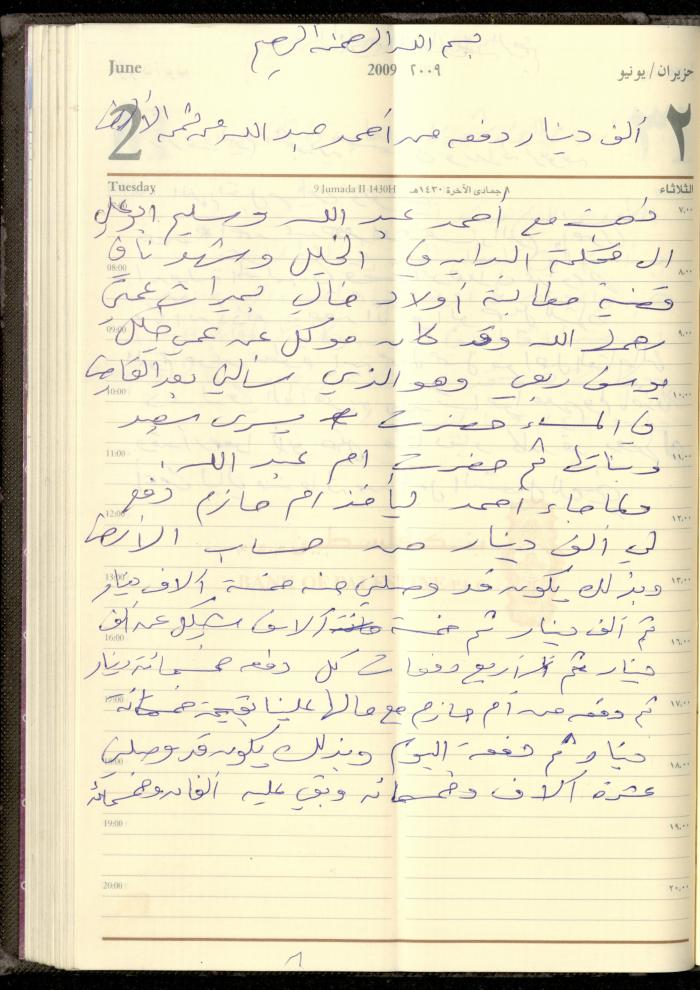 بسم الله الرحمن الرحيم
June 2009 ٢٠٠٩ حزيران / يونيو
2 ألف دينار دفعه من أحمد عبد الله من ثمن الأرض ٢
Tuesday 9 Jumada II 1430H ٨ جمادى الآخرة ١٤٣٠هـ الثلاثاء
ذهبت مع أحمد عبد الله وسليم أبو علي ٧,٠٠
08:00 الى محكمة البداية في الخليل وشهدنا في ٨,٠٠
قضية مطالبة أولاد خالي بميراث عمتي
09:00 رحمها الله وقد كان موكل عن عمي خليل ٩,٠٠
10:00 يوسف ربعي وهو الذي سألني بعد القاضي ١٠,٠٠
في المساء حضرت يسرى سعيد
11:00 وبناتها ثم حضرت ام عبد الله. ١١,٠٠
12:00 ولما جاء أحمد ليأخذ ام حازم دفع ١٢,٠٠
لي ألف دينار من حساب الأرض
13:00 وبذلك يكون قد وصلني منه خمسة آلاف دينار ١٣,٠٠
ثم ألف دينار ثم خمسة آلاف شيكل عن ألف
16:00 دينار ثم أربع دفعات كل دفعه خمسمائة دينار ١٦,٠٠
17:00 ثم دفعه من أم حازم مع مالها علينا بقيمة خمسمائة ١٧,٠٠
18:00 دينار ثم دفعة اليوم وبذلك يكون قد وصلني ١٨,٠٠
عشرة آلاف وخمسمائه وبقي عليه ألفان وخمسمائة
19:00 ١٩,٠٠
20:00 ٢٠,٠٠